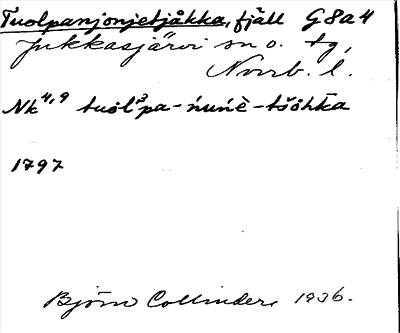 Tuolpanjonjetjåkka, fjäll G8a4
Jukkasjärvi sn o. tg,
Norrb. l.
Nk⁴,⁹ tuol³pa-ńuńè-tšohka
1797
Björn Collinder 1936.